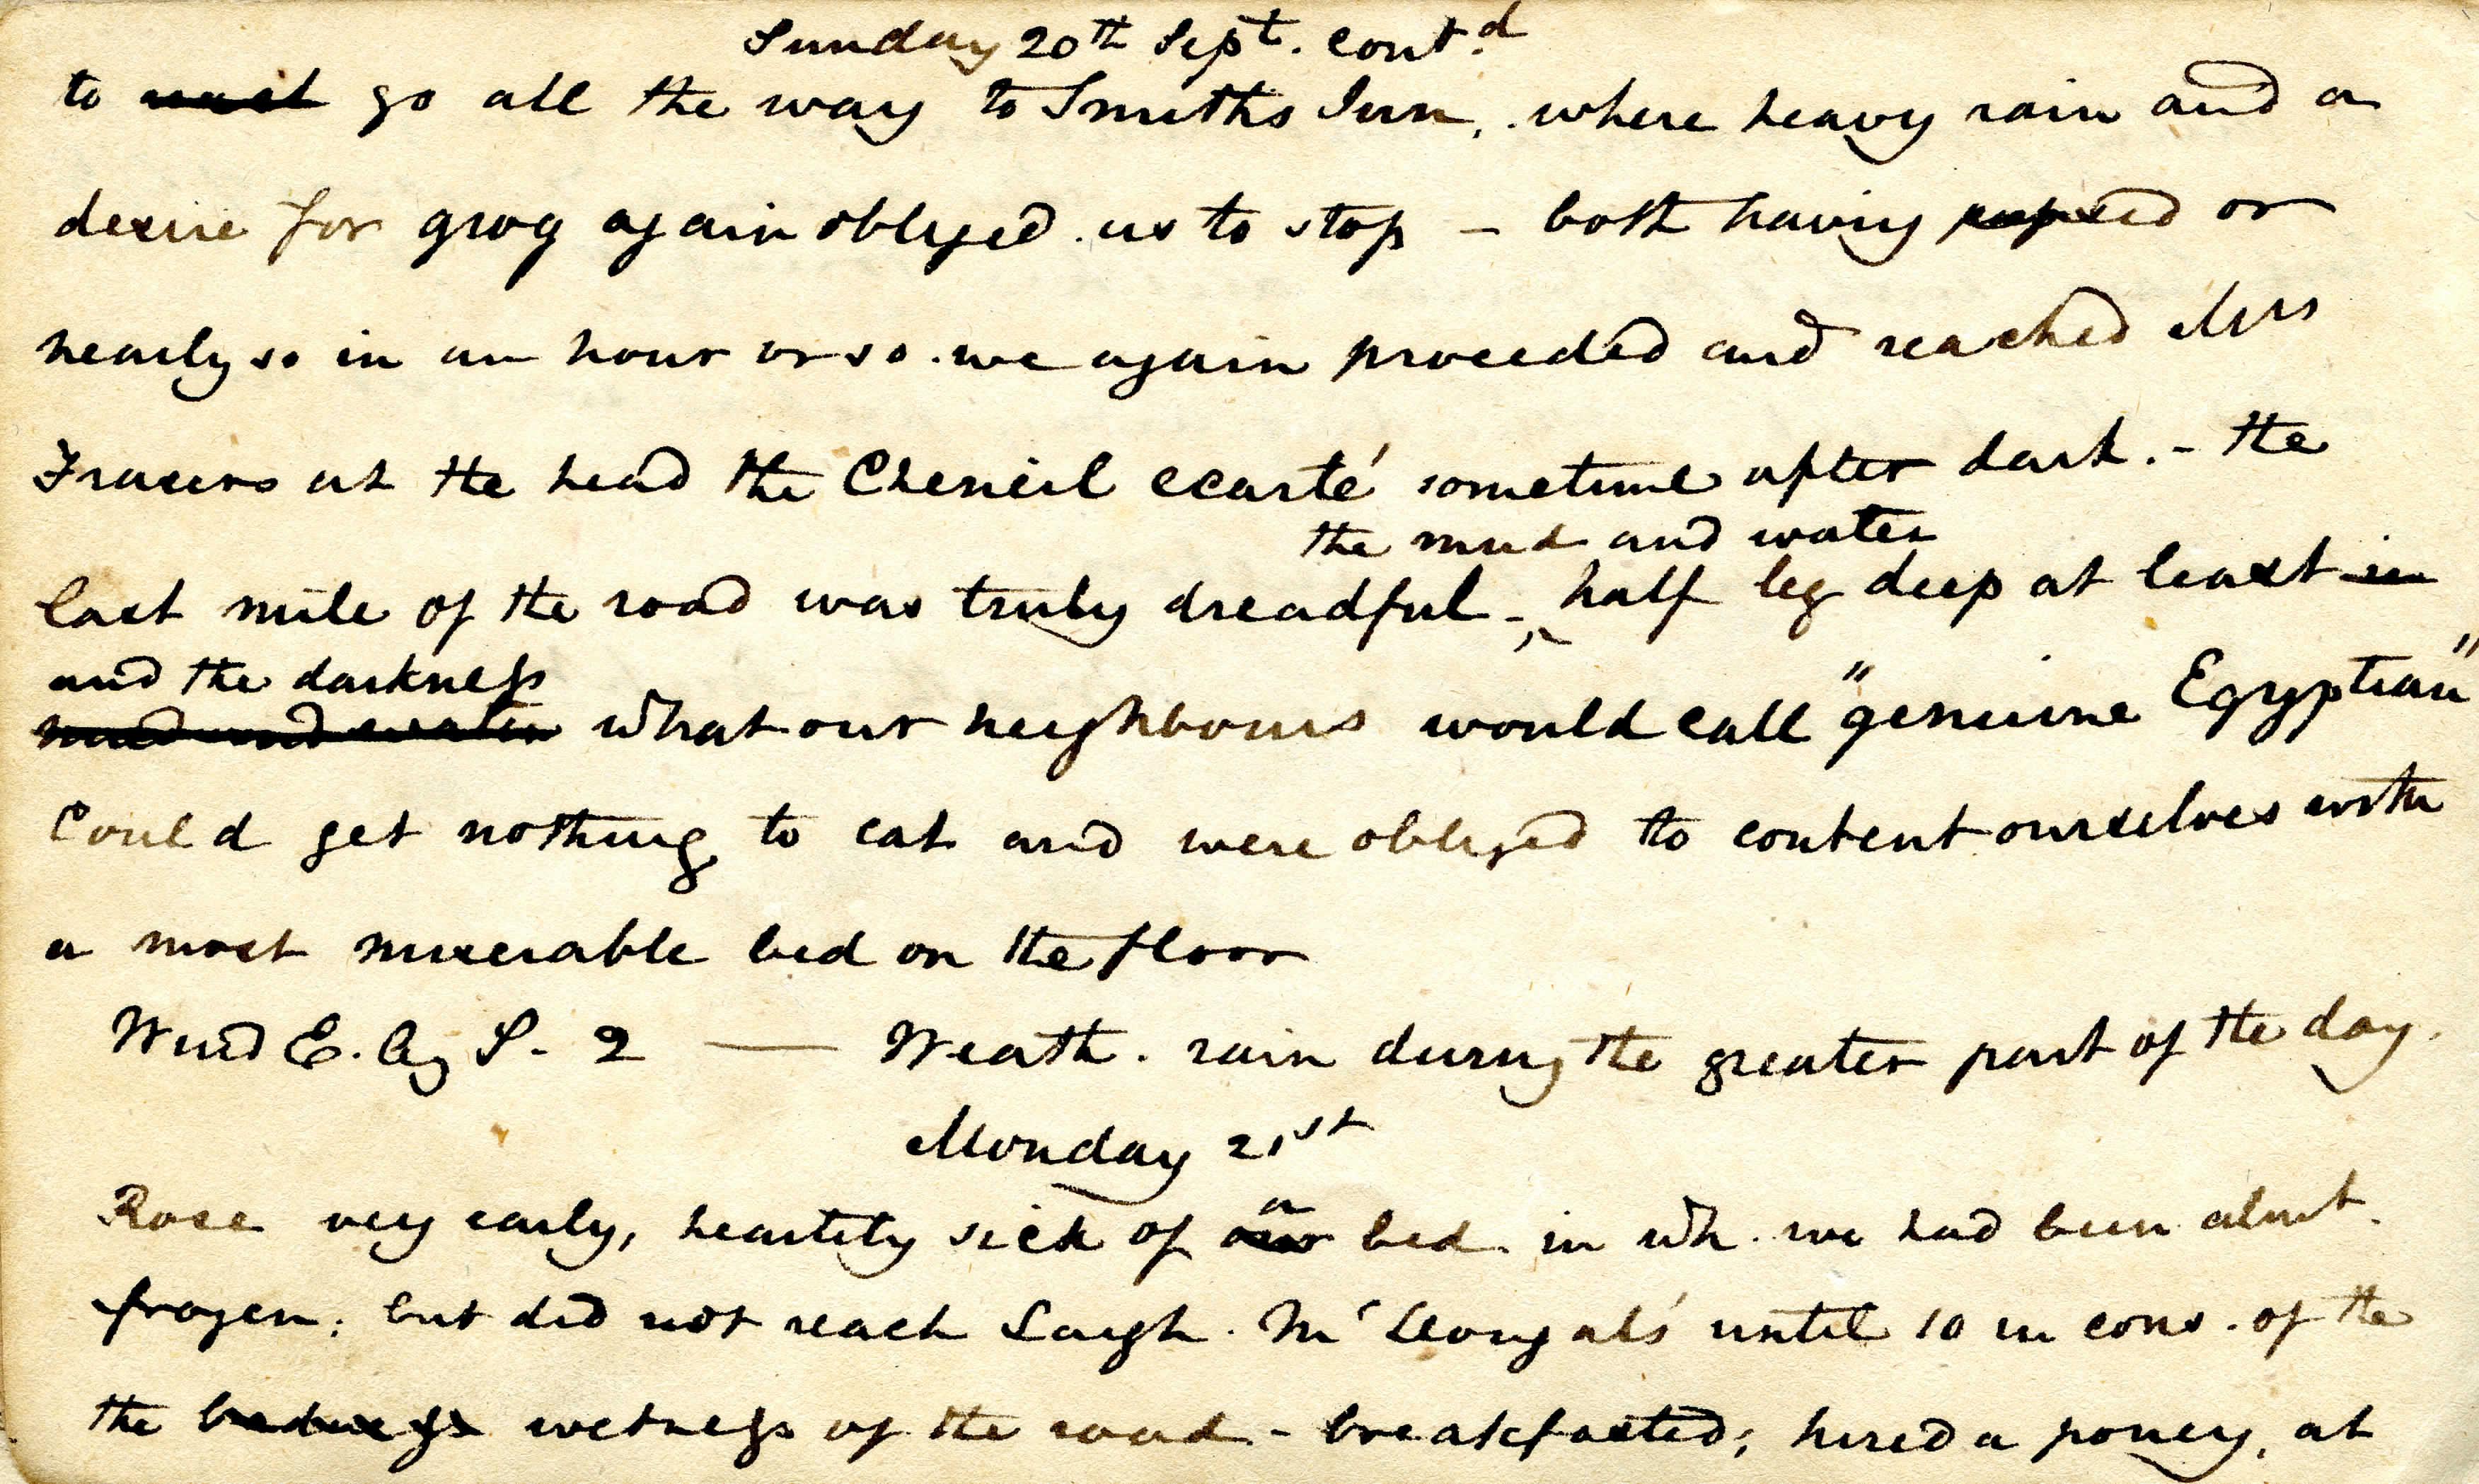 Sunday 20th Sept. cont.d
to wait go all the way to Smiths Inn, where heavy rain and a
desire for grog again obliged us to stop – both having or
nearly so in an hour or so we again proceeded and reached Mrs
Frasers at the head the Cheneil ecarté sometime after dark. – the
the mud and water
last mile of the road was truly dreadful –, half leg deep at least in
and the darkness
mud and water what our neighbours would call "genuine Egyptian"
Could get nothing to eat and were obliged to content ourselves with
a most miserable bed on the floor
Wind E. by S. 2 — Weath. rain during the greater part of the day.
Monday 21st
a
Rose very early, heartily sick of our bed in wh. we had been almt.
frozen; but did not reach Laugh. Mc'Dougals' until 10 in cons. of the
the badness wetness of the road – breakfasted; hired a poney, at